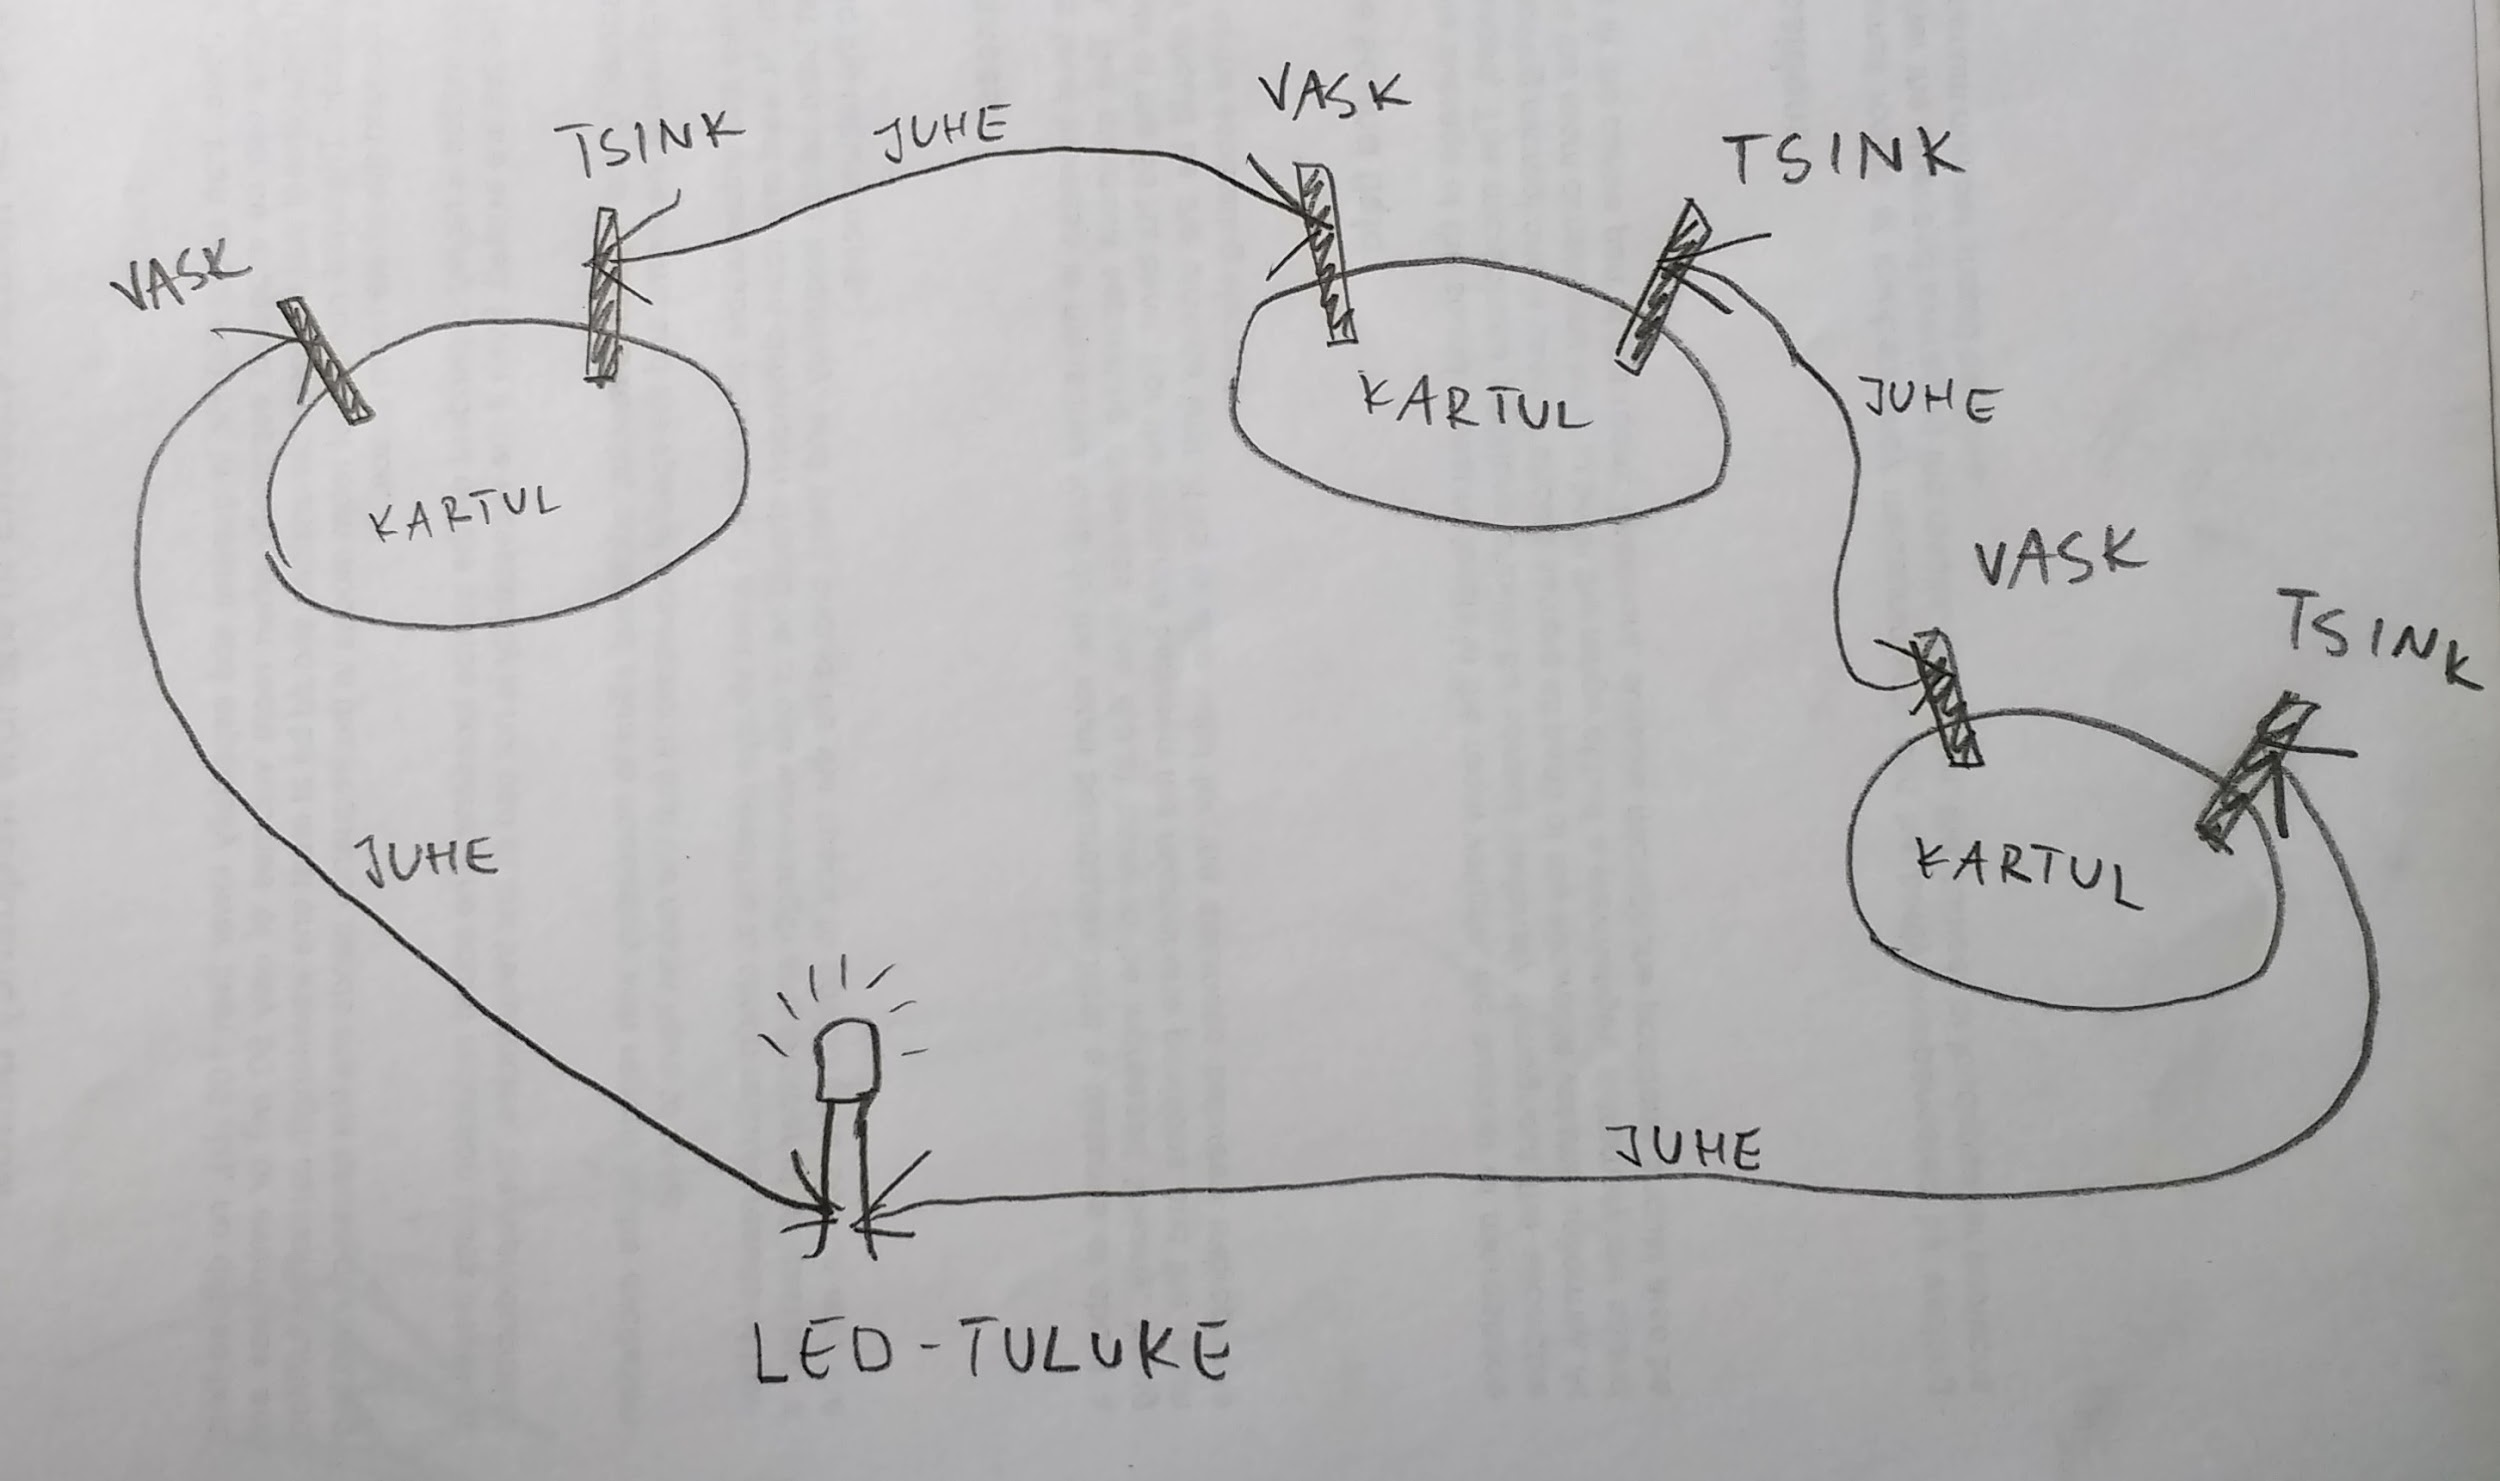 VASK
TSINK
JUHE
VASK
TSINK
KARTUL
KARTUL
JUHE
VASK
TSINK
KARTUL
JUHE
JUHE
LED-TULUKE